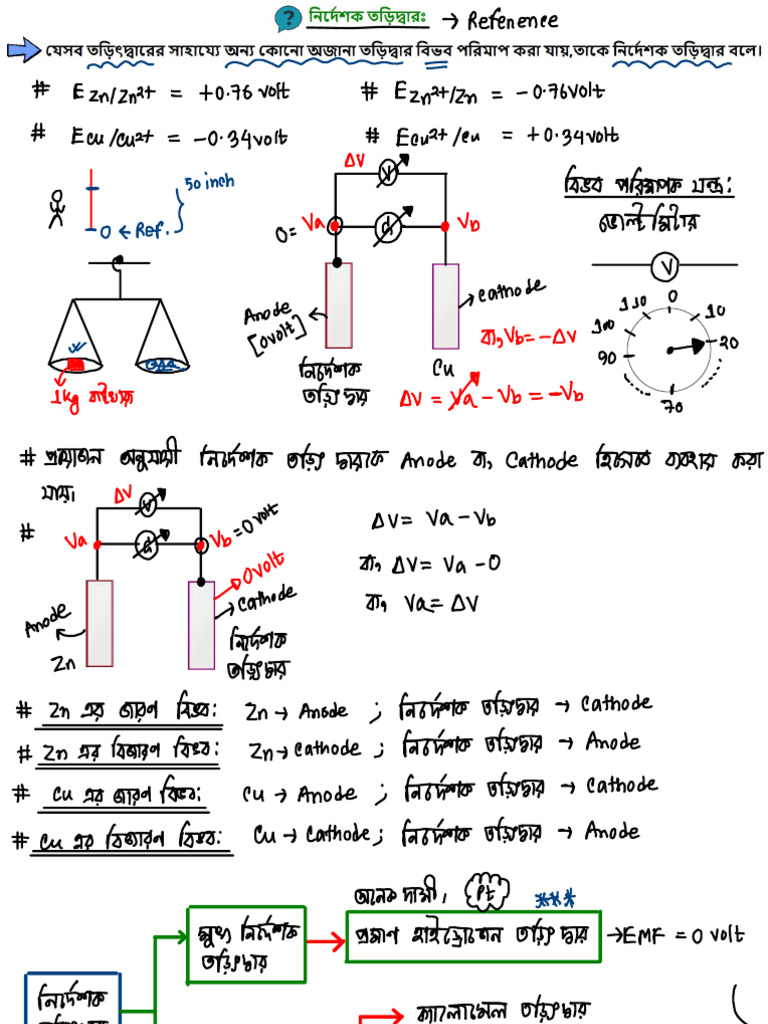 নির্দেশক তড়িদ্বারঃ → Reference
যেসব তড়িৎদ্বারের সাহায্যে অন্য কোনো অজানা তড়িদ্বার বিভব পরিমাপ করা যায়,তাকে নির্দেশক তড়িদ্বার বলে।
# E Zn/Zn2+ = +0.76 volt
# E Zn2+/Zn = -0.76 volt
# E Cu/Cu2+ = -0.34 volt
# E Cu2+/Cu = +0.34 volt
50 inch
0 ← Ref.
1kg বাটখারা
ΔV
V
0 = Va
Vb
Anode
[0 volt]
Cathode
নির্দেশক তড়িৎ দ্বার
Cu
বা, Vb = -ΔV
ΔV = Va - Vb = -Vb
বিভব পরিমাপক যন্ত্র:
ভোল্ট মিটার
V
0
10
20
70
90
100
110
# প্রয়োজন অনুযায়ী নির্দেশক তড়িৎ দ্বারকে Anode বা, Cathode হিসেবে ব্যবহার করা
যায়।
#
ΔV
V
Va
Vb = 0 volt
0 volt
Cathode
Anode
Zn
নির্দেশক তড়িৎদ্বার
ΔV = Va - Vb
বা, ΔV = Va - 0
বা, Va = ΔV
# Zn এর জারণ বিভব: Zn → Anode ; নির্দেশক তড়িৎদ্বার → Cathode
# Zn এর বিজারণ বিভব: Zn → Cathode ; নির্দেশক তড়িৎদ্বার → Anode
# Cu এর জারণ বিভব: Cu → Anode ; নির্দেশক তড়িৎদ্বার → Cathode
# Cu এর বিজারণ বিভব: Cu → Cathode ; নির্দেশক তড়িৎদ্বার → Anode
অনেক দামী, Pt ***
মুখ্য নির্দেশক তড়িৎদ্বার
প্রমাণ হাইড্রোজেন তড়িৎ দ্বার → EMF = 0 volt
নির্দেশক
ক্যালোমেল তড়িৎদ্বার